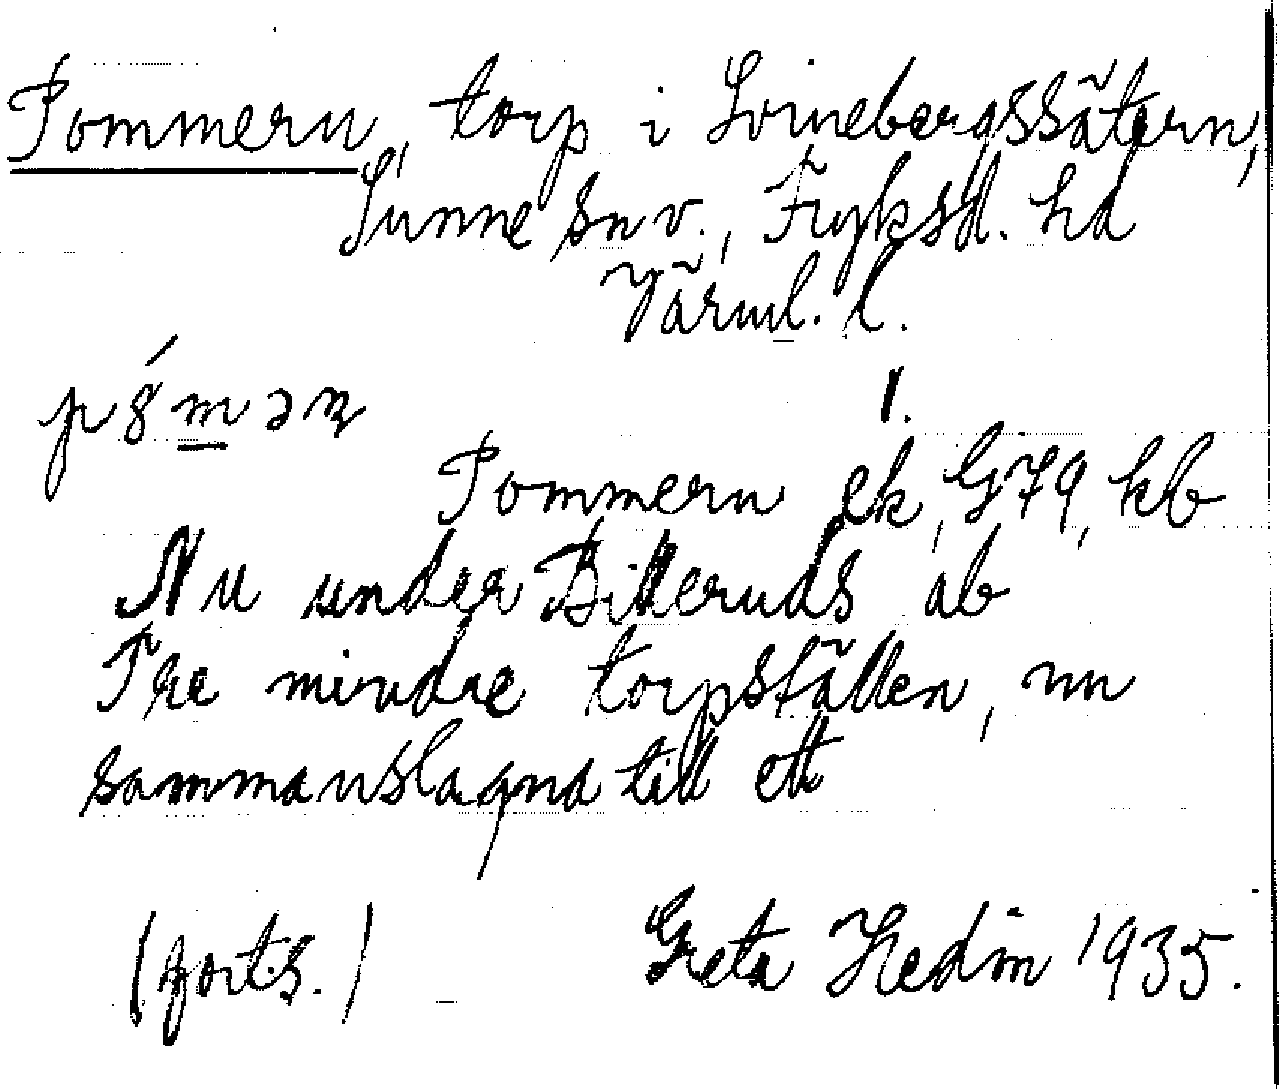 Pommern, torp i Svinebergssätern,
Sunne sn v., Fryksd. hd
Värml. l.
p8́məɳ
1.
Pommern ek, G79, kb
Nu under Billeruds ab
Tre mindre torpställen, nu
sammanslagna till ett
(forts.) Greta Hedin 1935.